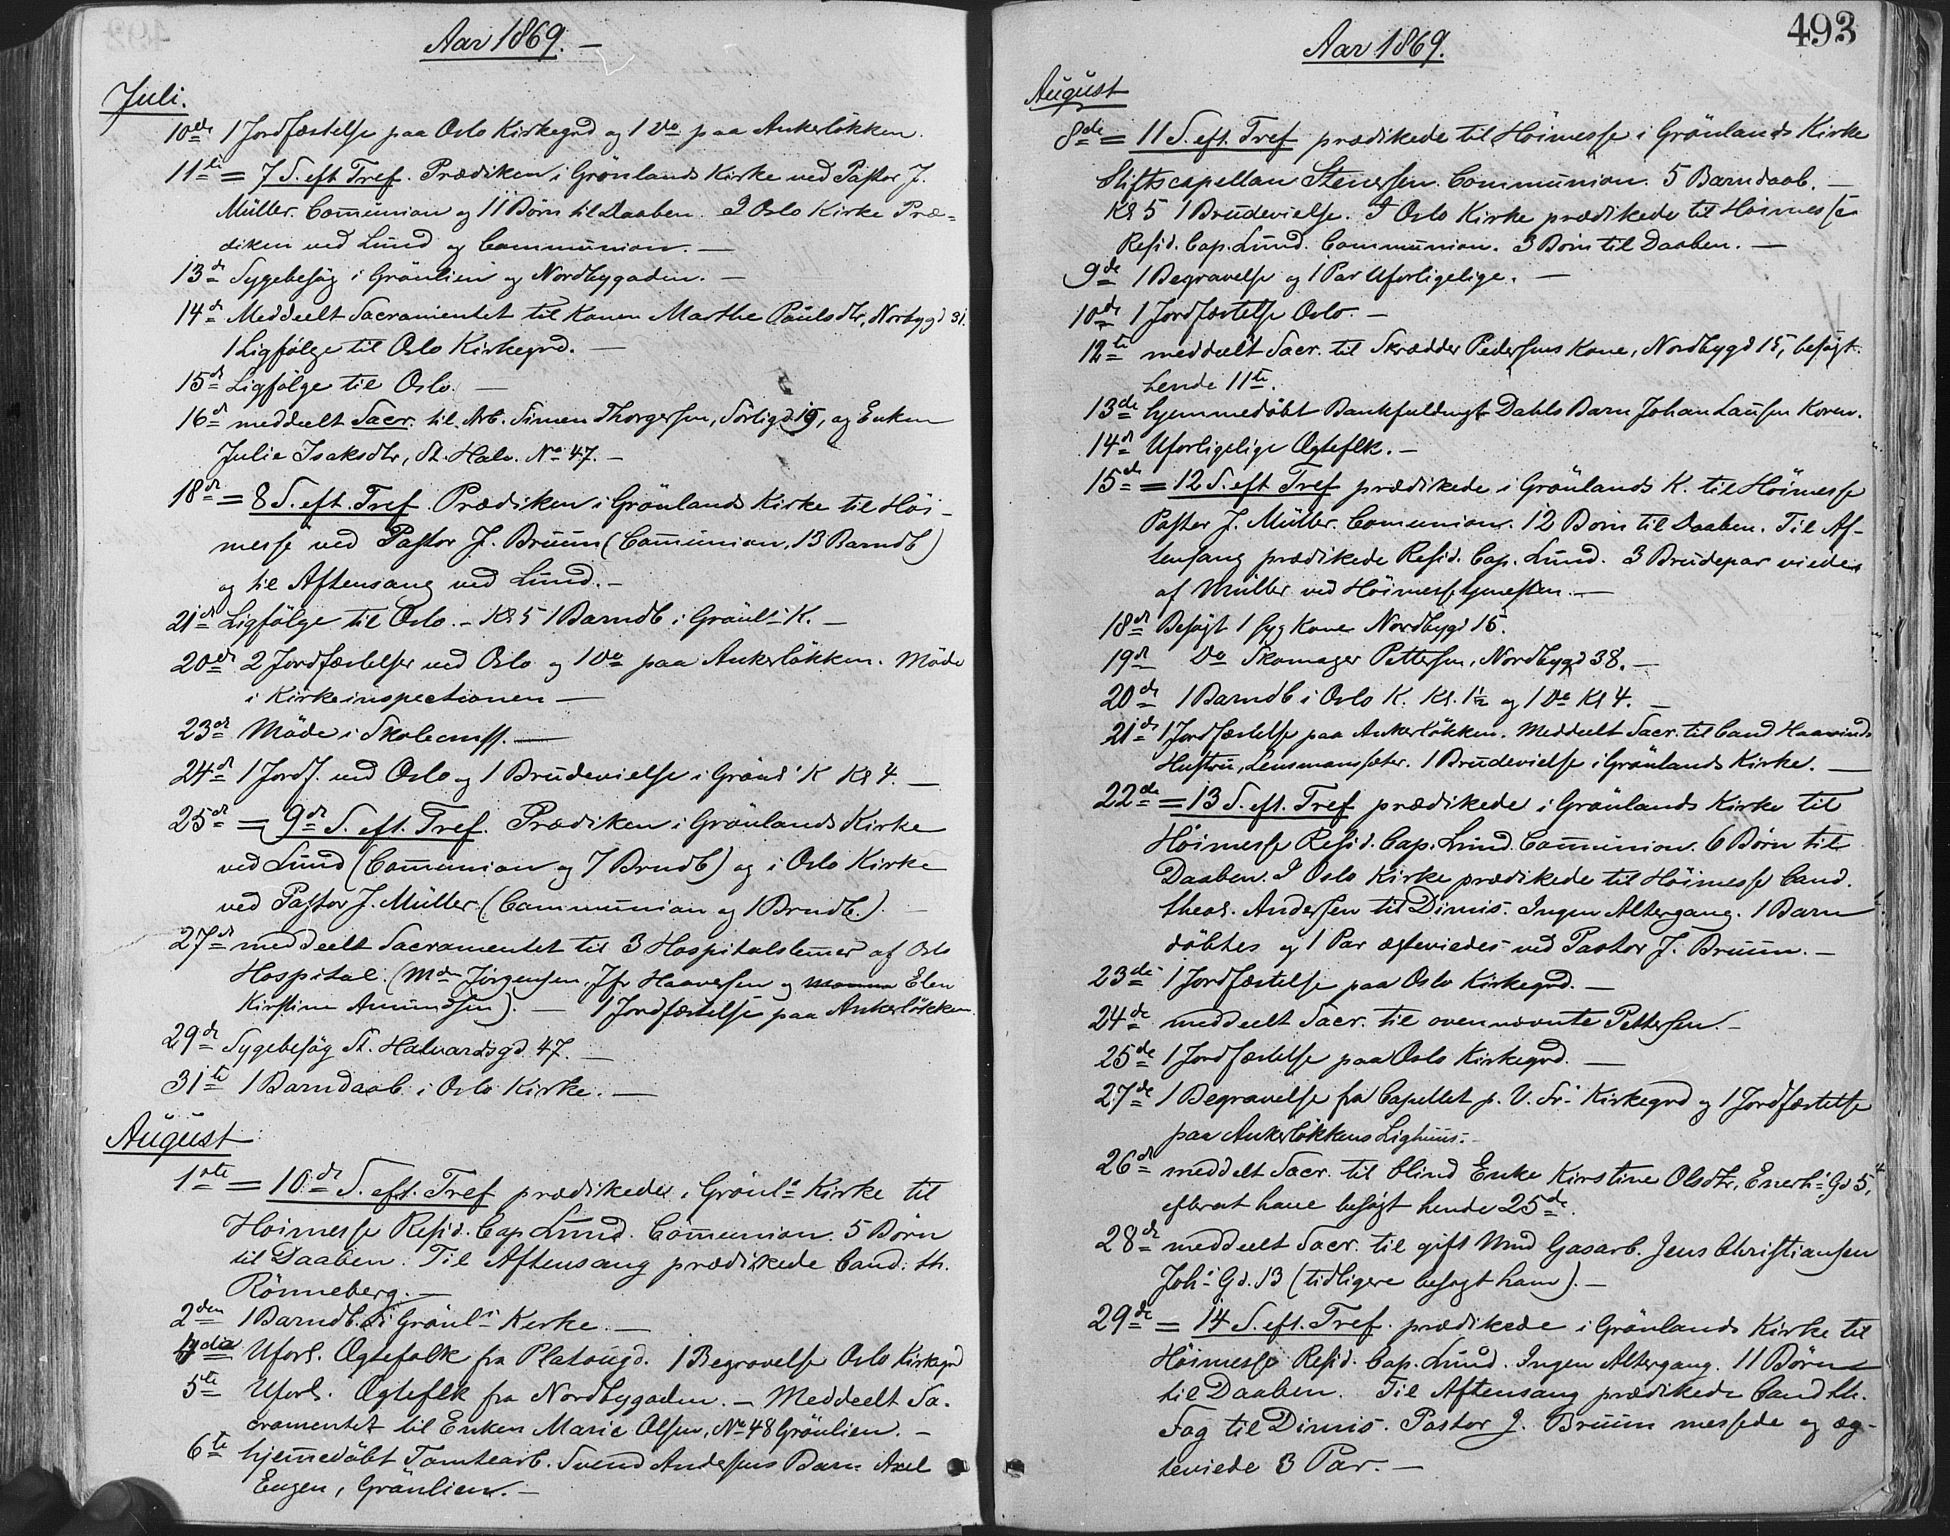 Aar 1869. –
Juli.
10de 1 Jordfæstelse paa Oslo Kirkegrd og 1 Do paa Ankerløkken.
11te = 7 S. eft. Tref. Prædiken i Grønlands Kirke ved Pastor J.
Müller. Communion og 11 Børn til Daaben. I Oslo Kirke Præ-
diken ved Lund og Communion. –
13de Sygebesøg i Grønlien og Nordbygaden. –
14de Meddeelt Sacramentet til Konen Marthe Paulsdtr, Norbygd 31.
1 Ligfølge til Oslo Kirkegrd. –
15de Ligfølge til Oslo. –
16de meddeelt Sacr. til Arb. Simen Thorgersen, Sørligd 19, og Enken
Julie Isaksdtr, St. Halv. No 47. –
18de = 8 S. eft. Tref. Prædiken i Grønlands Kirke til Høi-
messe ved Pastor J. Bruun (Communion, 13 Barndb)
og til Aftensang ved Lund. –
21de Ligfølge til Oslo. – Kl. 5 1 Barndb. i Grønls K. –
20de 2 Jordfæstelser ved Oslo og 1 Do paa Ankerløkken. Møde
i Kirkeinspectionen –
23de Møde i Skolecomss. –
24de 1 Jordf. ved Oslo og 1 Brudevielse i Grønls K Kl 4. –
25de = 9de S. eft. Tref. Prædiken i Grønlands Kirke
ved Lund (Communion og 7 Brndb) og i Oslo Kirke
ved Pastor J. Müller (Communion og 1 Brndb.). –
27de meddeelt Sacramentet til 3 Hospitalslemer af Oslo
Hospital. (Mdm Jørgensen, Jfr Haavesen og Elen
Kirstine Amundsen). – 1 Jordfæstelse paa Ankerløkken.
29de Sygebesøg St. Halvardsgd. 47. –
31te 1 Barndaab i Oslo Kirke. –
August
1ste = 10de S. eft. Tref prædikede i Grønls Kirke til
Høimesse Resid. Cap. Lund. Communion. 5 Børn
til Daaben. Til Aftensang prædikede Cand. th.
Rønneberg. –
2den 1 Barndb. i Grønls Kirke. –
4de Uforl. Ægtefolk fra Platougd. 1 Begravelse Oslo Kirkegrd
5te Uforl. Ægteflk fra Nordbygaden. – Meddeelt Sa-
cramentet til Enken Marie Olsen, No 48 Grønlien. –
6te hjemmedøbt Tomtearb. Svend Andersens Barn Axel
Eugen, Grønlien. –
493
Aar 1869.
August
8de = 11 S. eft. Tref prædikede til Høimesse i Grønlands Kirke
Stiftscapellan Stenersen. Communion. 5 Barndaab. –
Kl 5 1 Brudevielse. I Oslo Kirke prædikede til Høimesse
Resid. Cap. Lund. Communion. 3 Børn til Daaben. –
9de 1 Begravelse og 1 Par Uforligelige. –
10de 1 Jordfæstelse Oslo. –
12te meddeelt Sacr. til Skrædder Pedersens Kone, Nordbygd 15, besøgt
hende 11te.
13de hjemmedøbt Bankfuldmgt Dahls Barn Johan Lausen Koren.
14de Uforligelige Ægteflk. –
15de = 12 S. eft Tref prædikede i Grønlands K. til Høimesse
Pastor J. Müller. Communion. 12 Børn til Daaben. Til Af-
tensang prædikede Resid. Cap. Lund. 3 Brudepar viedes
af Müller ved Høimessetjenesten. –
18de Besøgt 1 syg Kone Nordbygd 15.
19de Do Skomager Pettersen, Nordbygd 38. –
20de 1 Barndb i Oslo K. Kl. 1½ og 1 Do Kl 4. –
21de 1 Jordfæstelse paa Ankerløkken. Meddeelt Sacr. til Cand Haavinds
Hustru, Lensmanssæter. 1 Brudevielse i Grønlands Kirke. –
22de = 13 S. eft. Tref prædikede i Grønlands Kirke til
Høimesse Resid. Cap. Lund. Communion. 6 Børn til
Daaben. I Oslo Kirke prædikede til Høimesse Cand.
theol. Andersen til Dimis. Ingen Altergang. 1 Barn
døbtes og 1 Par ægteviedes ved Pastor J. Bruun. –
23de 1 Jordfæstelse paa Oslo Kirkegrd. –
24de meddeelt Sacr. til ovennævnte Pettersen. –
25de 1 Jordfæstelse paa Oslo Kirkegrd. –
27de 1 Begravelse fra Capellet p. V. Frs Kirkegrd og 1 Jordfæstelse
paa Ankerløkkens Lighuus. –
26de meddelt Sacr. til blind Enke Kirstine Olsdtr, Enerh. Gd 5,
efterat have besøgt hende 25de.
28de meddeelt Sacr. til gift Mnd Gasarb. Jens Christiansen
Johs Gd. 13 (tidligere besøgt ham). –
29de = 14 S. eft. Tref. prædikede i Grønlands Kirke til
Høimesse Resid. Cap. Lund. Ingen Altergang. 11 Børn
til Daaben. Til Aftensang prædikede Cand th.
Fog til Dimis. Pastor J. Bruun messede og æg-
teviede 3 Par. –